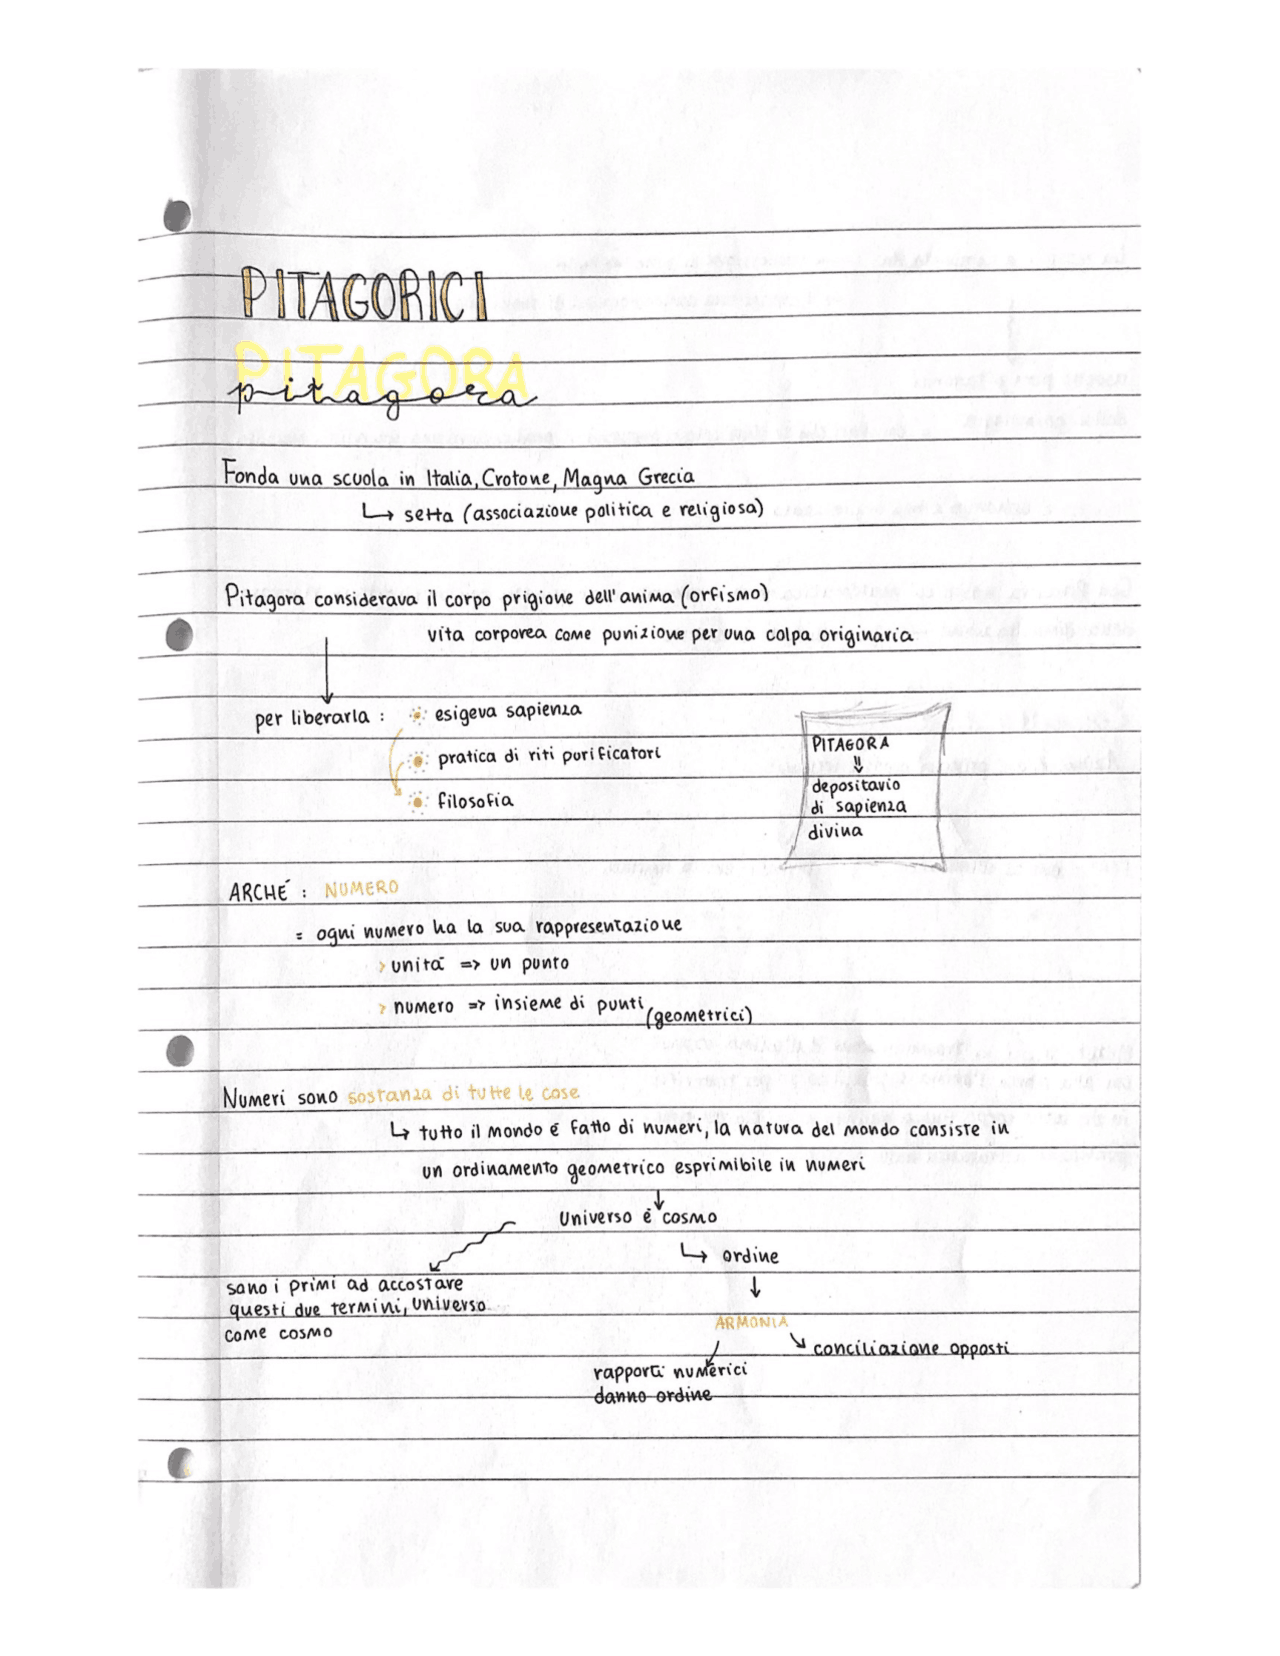 PITAGORICI
PITAGORA
pitagora
Fonda una scuola in Italia, Crotone, Magna Grecia
↳ setta (associazione politica e religiosa)
Pitagora considerava il corpo prigione dell'anima (orfismo)
vita corporea come punizione per una colpa originaria
per liberarla : esigeva sapienza
pratica di riti purificatori
filosofia
PITAGORA
⇓
depositavio
di sapienza
divina
ARCHÉ : NUMERO
= ogni numero ha la sua rappresentazione
> unitá => un punto
> numero => insieme di punti (geometrici)
Numeri sono sostanza di tutte le cose
↳ tutto il mondo é fatto di numeri, la natura del mondo consiste in
un ordinamento geometrico esprimibile in numeri
↓
Universo é cosmo
↳ ordine
↓
sono i primi ad accostare
questi due termini, universo
come cosmo
ARMONIA
↘ conciliazione opposti
rapporti numerici
danno ordine